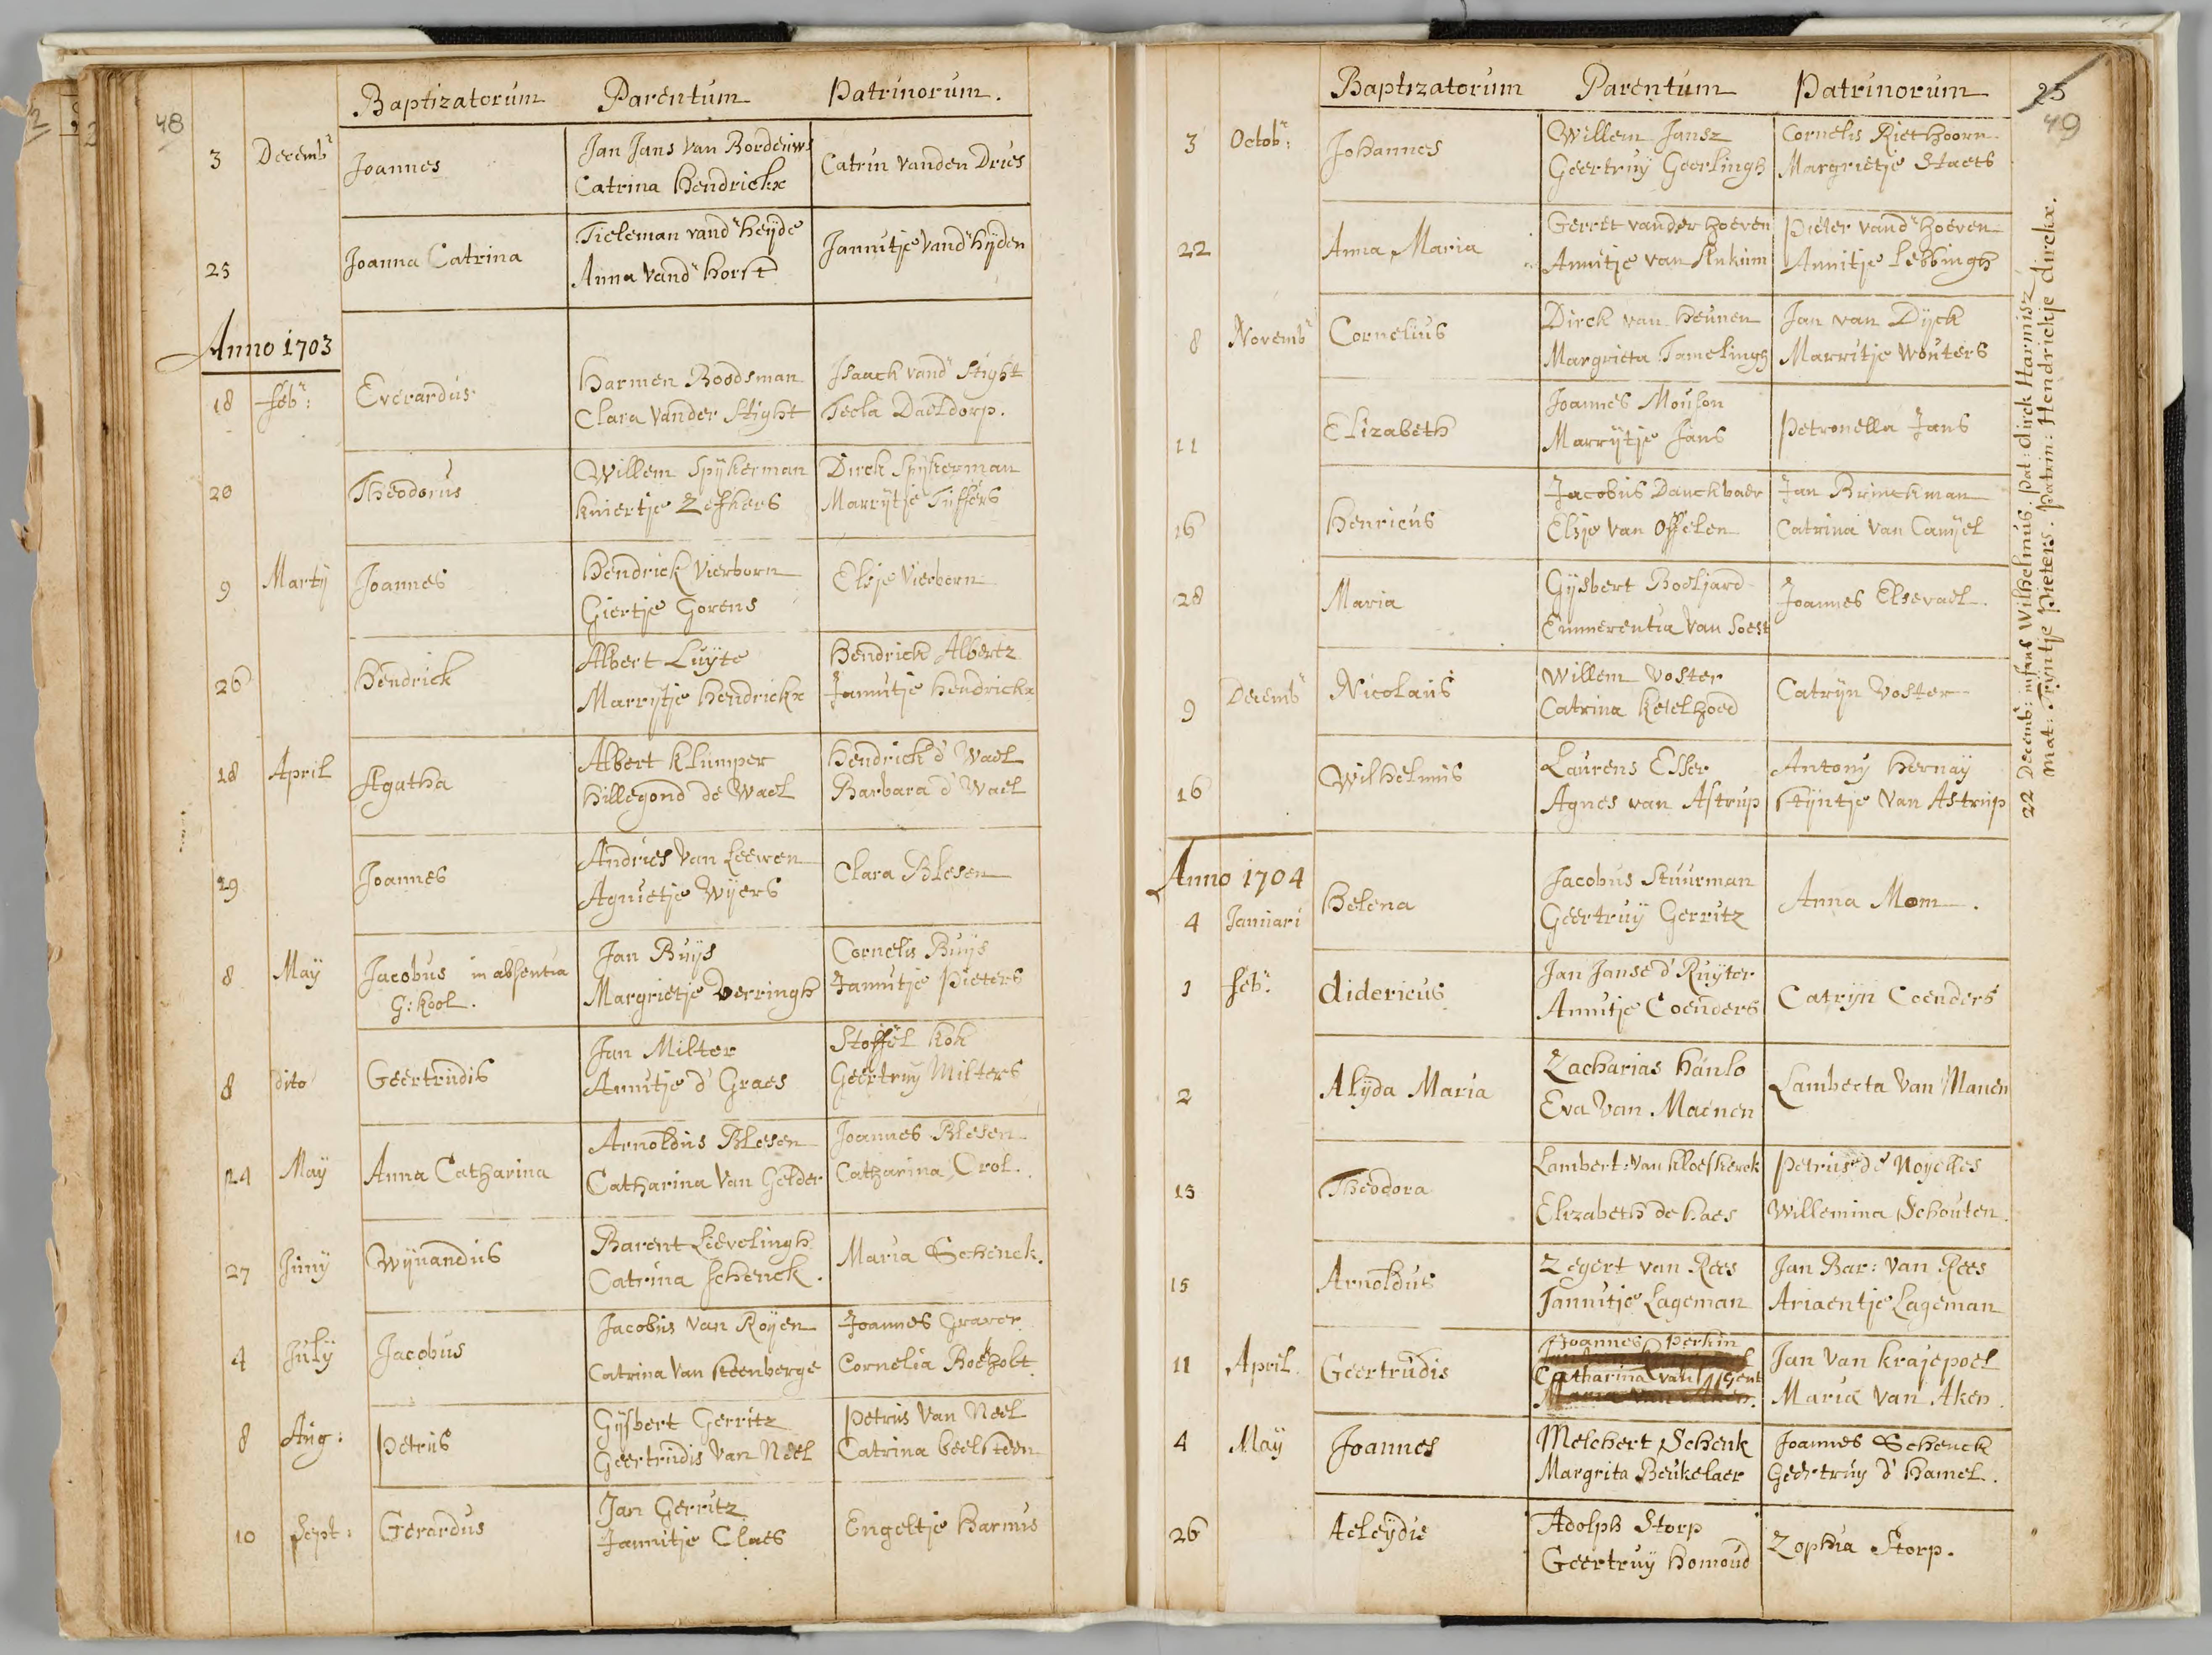 48
Baptizatorum Parentum Patrinorum.
3 Decembr Joannes
Jan Jans van Bordeuws
Catrina Hendrickx
Catrin vanden Dries
25 Joanna Catrina
Tieleman vandr Heyde
Anna vandr Horst
Jannitje vandr Hyden
Anno 1703
18 Febr: Everardus
Harmen Roodsman
Clara vander Stight
Isaack vandr Stight
Tecla Daeldorp.
20 Theodorus
Willem Spijkerman
Kniertje Zeskers
Dirck Spijkerman
Marrijtje Tissers
9 Martij Joannes
Hendrick Vierborn
Giertje Gorens
Elsje Vierborn
26 Hendrick
Albert Luijte
Marrijtje Hendrickx
Hendrick Albertz
Jannitje Hendrickx
18 April Agatha
Albert Klumper
Hillegond de Wael
Hendrick d' Wael
Barbara d' Wael
29 Joannes
Andries van Leewen
Agnietje Wijers
Clara Blesen
8 Maij Jacobus in absentia
G: Kool.
Jan Buijs
Margrietje Derringh
Cornelis Buijs
Jannitje Pieters
8 dito Geertrudis
Jan Milter
Annitje d' Graes
Stoffel Kok
Geertruij Milters
24 Maij Anna Catharina
Arnoldus Blesen
Catharina van Gelder
Joannes Blesen
Catharina Crol.
27 Junij Wijnandus
Barent Lievelingh
Catrina Schenck.
Maria Schenck.
4 Julij Jacobus
Jacobus van Roijen
Catrina van Steenberge
Joannes Graver
Cornelia Boekholt
8 Aug: Petrus
Gijsbert Gerritz
Geertrudis van Neel
Petrus van Neel
Catrina beelsteen
10 Sept: Gerardus
Jan Gerritz
Jannitje Claes
Engeltje Harmis
25
49
Baptizatorum Parentum Patrinorum
3 Octobr: Johannes
Willem Jansz
Geertruij Geerlingh
Cornelis Riethoorn
Margrietje Staets
22 Anna Maria
Gerrit vander Hoeven
Annitje van Ankum
Pieter vandr Hoeven
Annitje Lebbingh
8 Novembr Cornelius
Dirck van Heunen
Margrieta Tamelingh
Jan van Dijck
Marritje Wouters
11 Elizabeth
Joannes Mouson
Marrijtje Jans
Petronella Jans
16 Henricus
Jacobus Danckbaer
Elsje van Offelen
Jan Brinckman
Catrina van Canijel
28 Maria
Gijsbert Boeljard
Emmerentia van Soest
Joannes Elsevael.
9 Decembr Nicolaus
Willem Voster
Catrina Ketelhoed
Catrijn Voster
16 Wilhelmus
Laurens Esser
Agnes van Astrup
Antonij Hernaij
Stijntje van Astrup
Anno 1704
4 Januari Helena
Jacobus Stuurman
Geertruij Gerritz
Anna Mom.
1 Febr: didericus
Jan Janse d' Ruijter
Annitje Coenders
Catrijn Coenders
2 Alijda Maria
Zacharias Hanlo
Eva van Maenen
Lamberta van Manen
13 Theodora
Lambert: van Kloeskerck
Elizabeth de Haes
Petrus de Noyelles
Willemina Schouten.
15 Arnoldus
Zegert van Rees
Jannitje Lageman
Jan Bar: van Rees
Ariaentje Lageman
11 April. Geertrudis
Joannes Perkin
Catharina van Gent
Jan van Krajepoel
Maria van Aken.
4 Maij Joannes
Melchert Schenk
Margrita Beukelaer
Joannes Schenck
Geertruij d' Hamel.
26 Aeleijdis
Adolph Storp
Geertruij Homoud
Zophia Storp.
22 Decembr: infans Wilhelmus. pat: dirck Harmisz
mat: Trijntje Pieters. Patrin: Hendrickje dirckx.